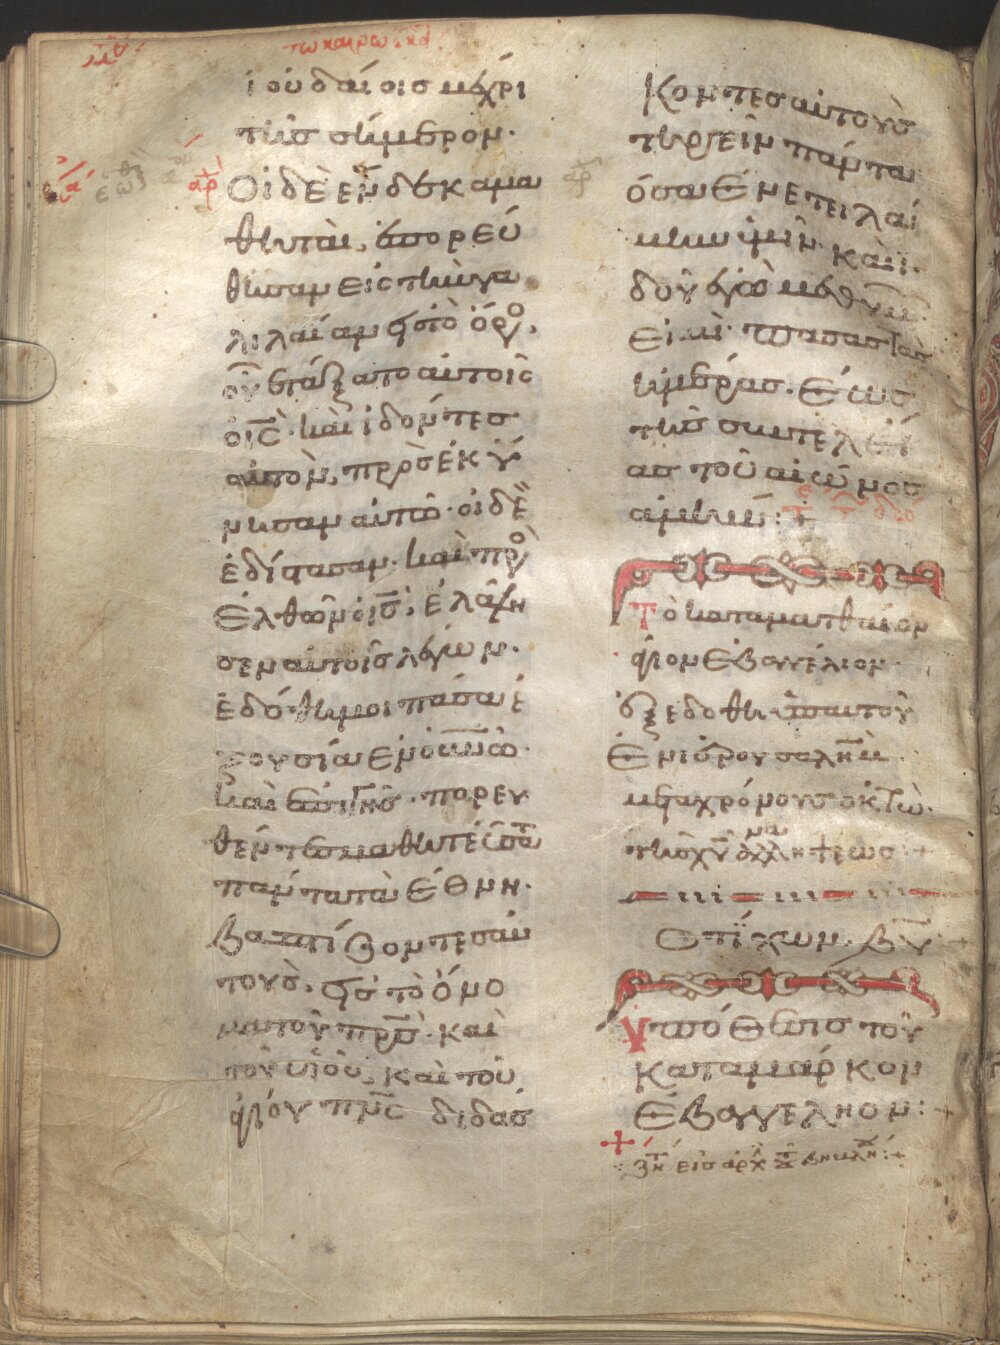 τω καιρω εκει
ϊουδαίοισ μέχρι
τῆσ σήμερον·
ἀρχ
Οἱ δὲ ἕνδεκα μα
θηταὶ, ἐπορεύ
θησαν εἰς τὴν γα
λιλαίαν εἰσ τὸ ὄροσ,
οὗ ἐτάξατο αὐτοῖς
ὁ ις̅· καὶ ἰδόντεσ
αὐτὸν, προσεκύ
νησαν αὐτῶ· οἱ δὲ
ἐδίστασαν· καὶ προσ
ελθὼν ὁ ισ̅, ἐλάλη
σεν αὐτοῖσ λέγων·
ἐδόθη μοι πᾶσα ἐ
ξουσία ἐν οὐνῶ
καὶ ἐπὶ γῆσ· πορευ
θέντεσ μαθητεύσατε
πάντα τὰ ἔθνη·
βαπτίζοντεσ αὐ
τοὺσ, εἰσ τὸ ὄνο
μα τοῦ πρ̅σ· καὶ
τοῦ υἱοῦ, καὶ τοῦ
ἁγίου πν̅ς διδάσ
κοντεσ αὐτοὺσ
τηρεῖν πάντα
ὅσα ἐνετειλά
μην ὑμῖν· καὶ ι
δοὺ ἐγὼ μεθ υμῶν
εἰμὶ· πάσασ τὰσ
ἡμέρασ· ἕωσ
τῆσ συντελεί
ασ τοῦ αἰῶνοσ
ἀμήν:+
Τὸ κατὰ ματθαίον
ἅγιον εὐαγγέλιον·
ἐξεδόθη ὑπ αυτοῦ
Ἐν ιἐρουσαλημ
μετα χρόνουσ οκτὼ·
τῆσ χυ̅ ἀναλήψεωσ:+
Στίχων βχ
Ὑπόθεσισ τοῦ
κατα μαρκον
Εὐαγγεληον:+